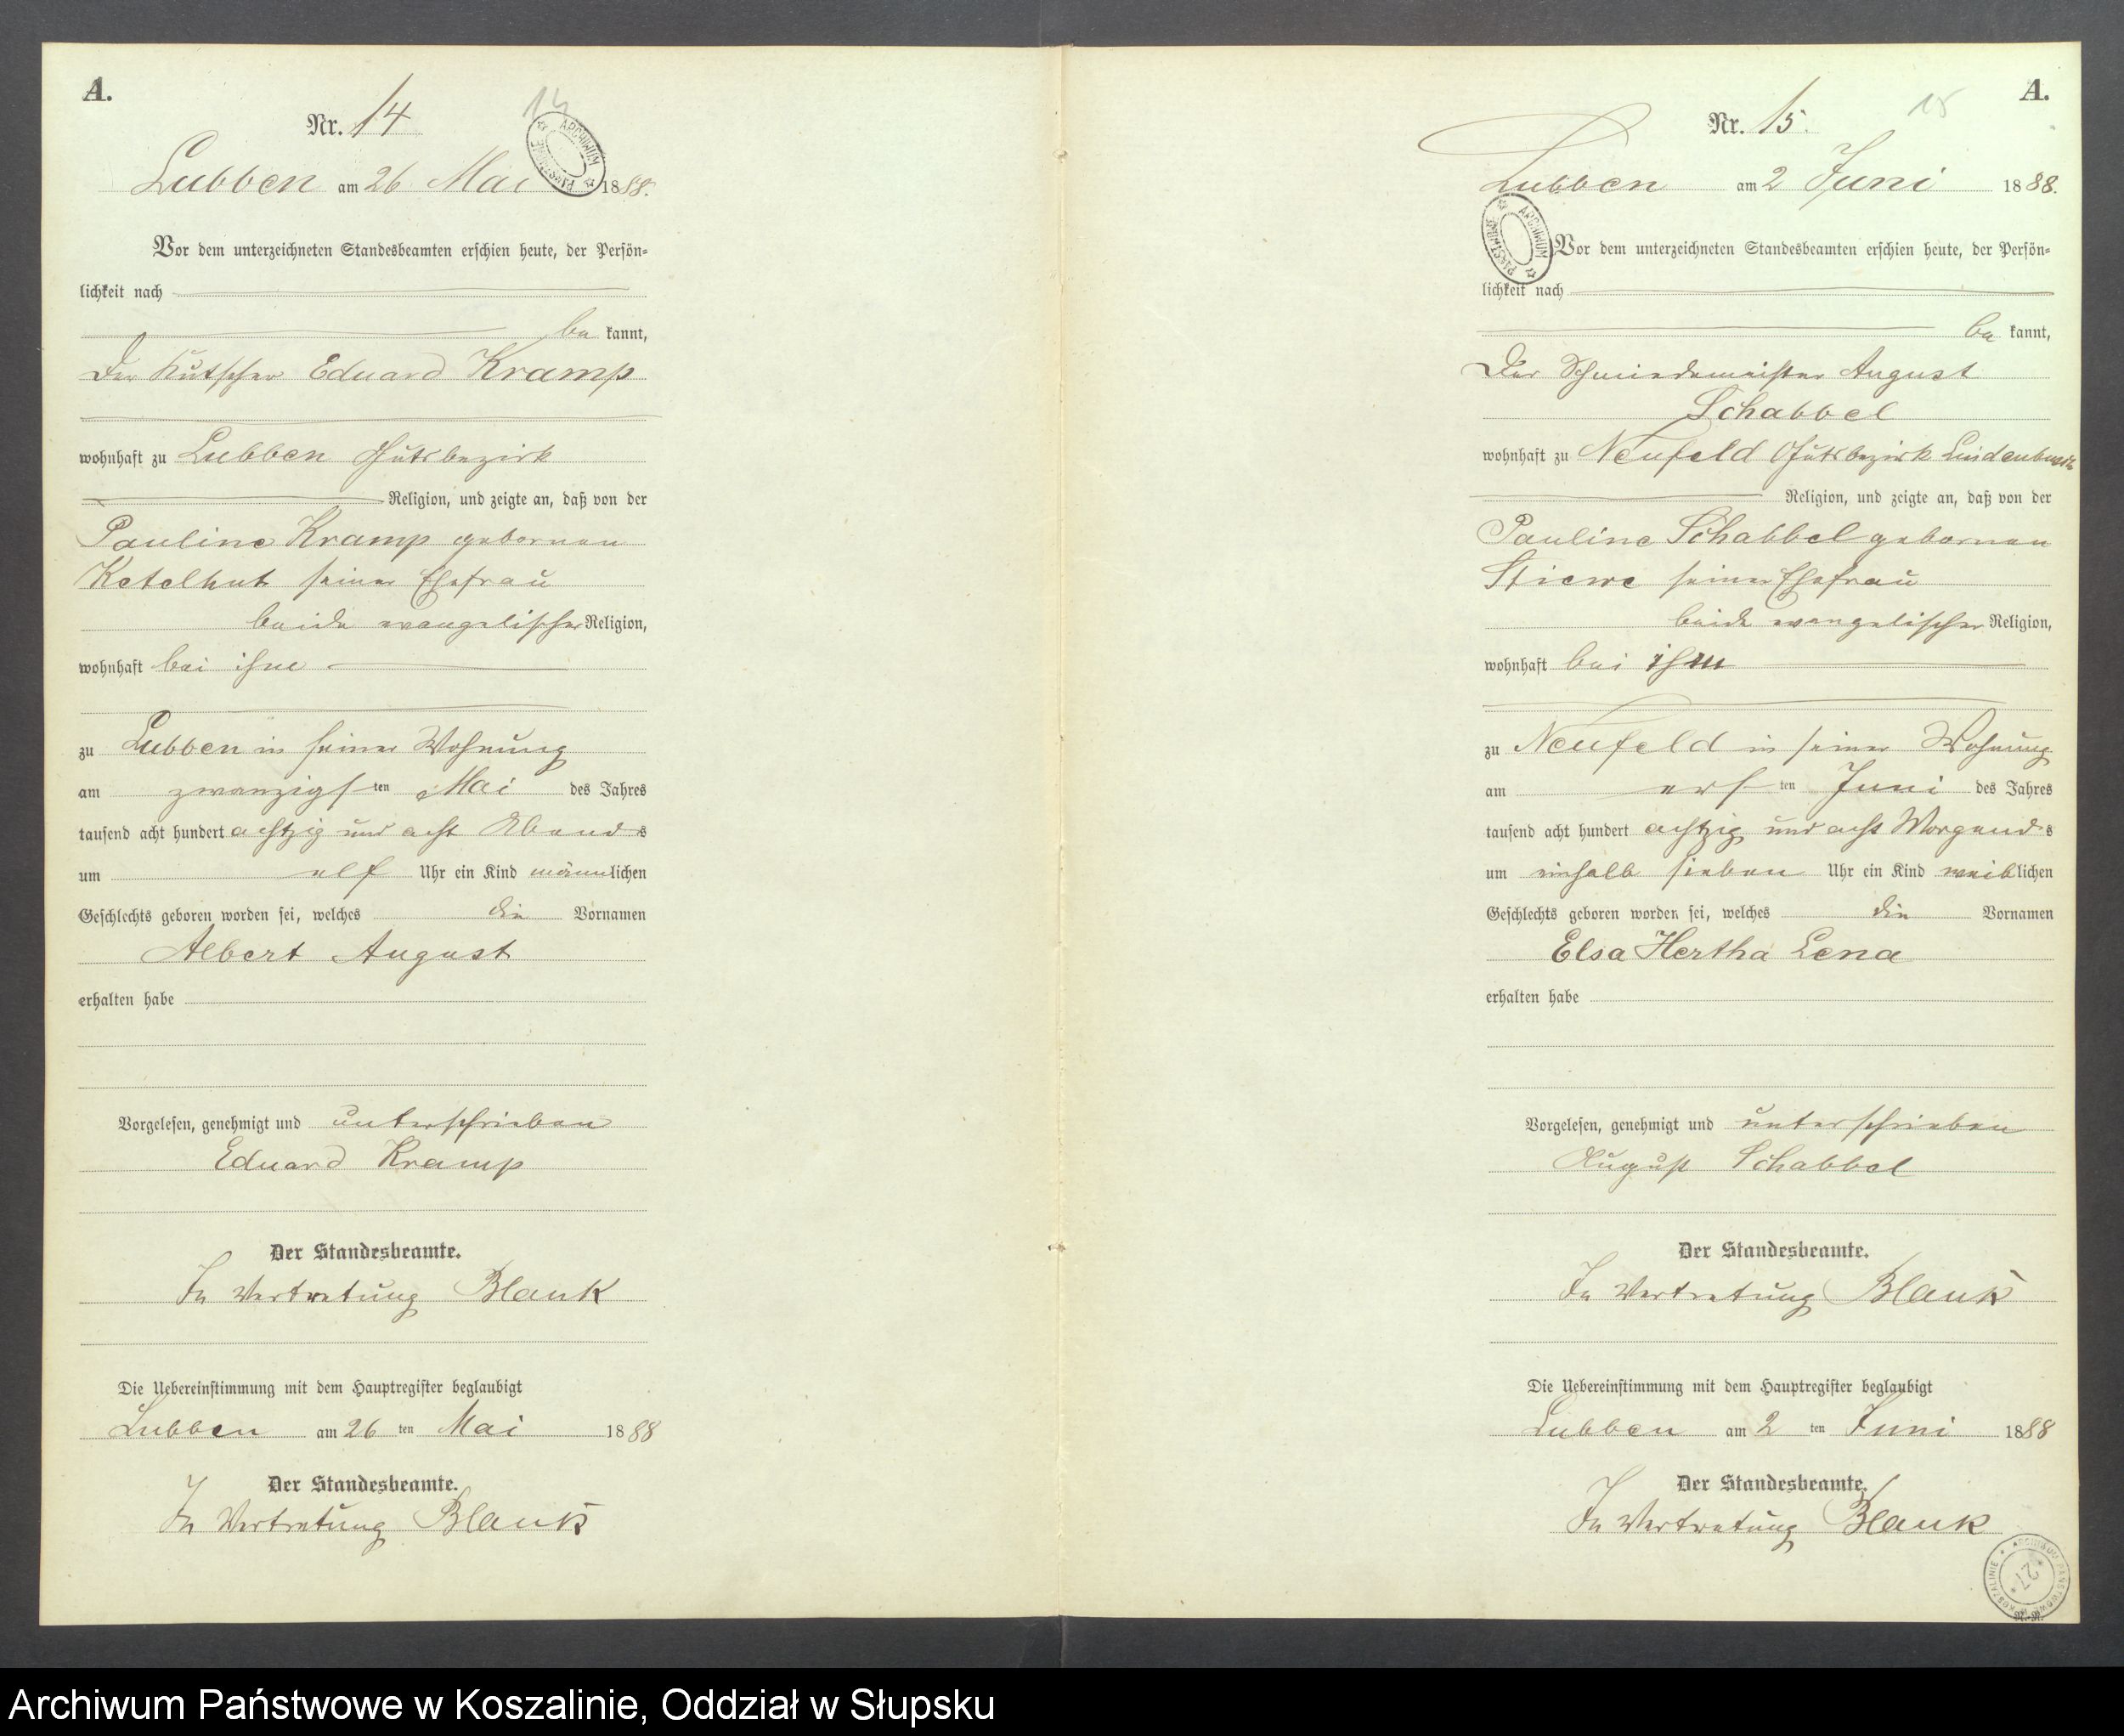 A.
Nr. 14
14
Lubben am 26 Mai 1888.
Vor dem unterzeichneten Standesbeamten erschien heute, der Persön=
lichkeit nach
be kannt,
Der Kutscher Eduard Kramp
wohnhaft zu Lubben Gutsbezirk
Religion, und zeigte an, daß von der
Pauline Kramp gebornen
Ketelhut seiner Ehefrau
beide evangelischer Religion,
wohnhaft bei ihm
zu Lubben in seiner Wohnung
am zwanzigsten Mai des Jahres
tausend acht hundert achtzig und acht Abends
um elf Uhr ein Kind männlichen
Geschlechts geboren worden sei, welches die Vornamen
Albert August
erhalten habe
Vorgelesen, genehmigt und unterschrieben
Eduard Kramp
Der Standesbeamte.
In Vertretung Blank
Die Uebereinstimmung mit dem Hauptregister beglaubigt
Lubben am 26 ten Mai 1888
Der Standesbeamte.
In Vertretung Blank
A.
15
Nr. 15.
Lubben am 2 Juni 1888.
Vor dem unterzeichneten Standesbeamten erschien heute, der Persön=
lichkeit nach
be kannt,
Der Schmiedemeister August
Schabbel
wohnhaft zu Neufeld Gutsbezirk
Religion, und zeigte an, daß von der
Pauline Schabbel gebornen
Stiewe seiner Ehefrau
beide evangelischer Religion,
wohnhaft bei ihm
zu Neufeld in seiner Wohnung
am ersten Juni des Jahres
tausend acht hundert achtzig und acht Morgends
um einhalb sieben Uhr ein Kind weiblichen
Geschlechts geboren worden sei, welches die Vornamen
Elsa Hertha Lena
erhalten habe
Vorgelesen, genehmigt und unterschrieben
August Schabbel
Der Standesbeamte.
In Vertretung Blank
Die Uebereinstimmung mit dem Hauptregister beglaubigt
Lubben am 2 ten Juni 1888
Der Standesbeamte.
In Vertretung Blank
ARCHIWUM PAŃSTWOWE
ARCHIWUM PAŃSTWOWE
ARCHIWUM PAŃSTWOWE W KOSZALINIE
27
Archiwum Państwowe w Koszalinie, Oddział w Słupsku